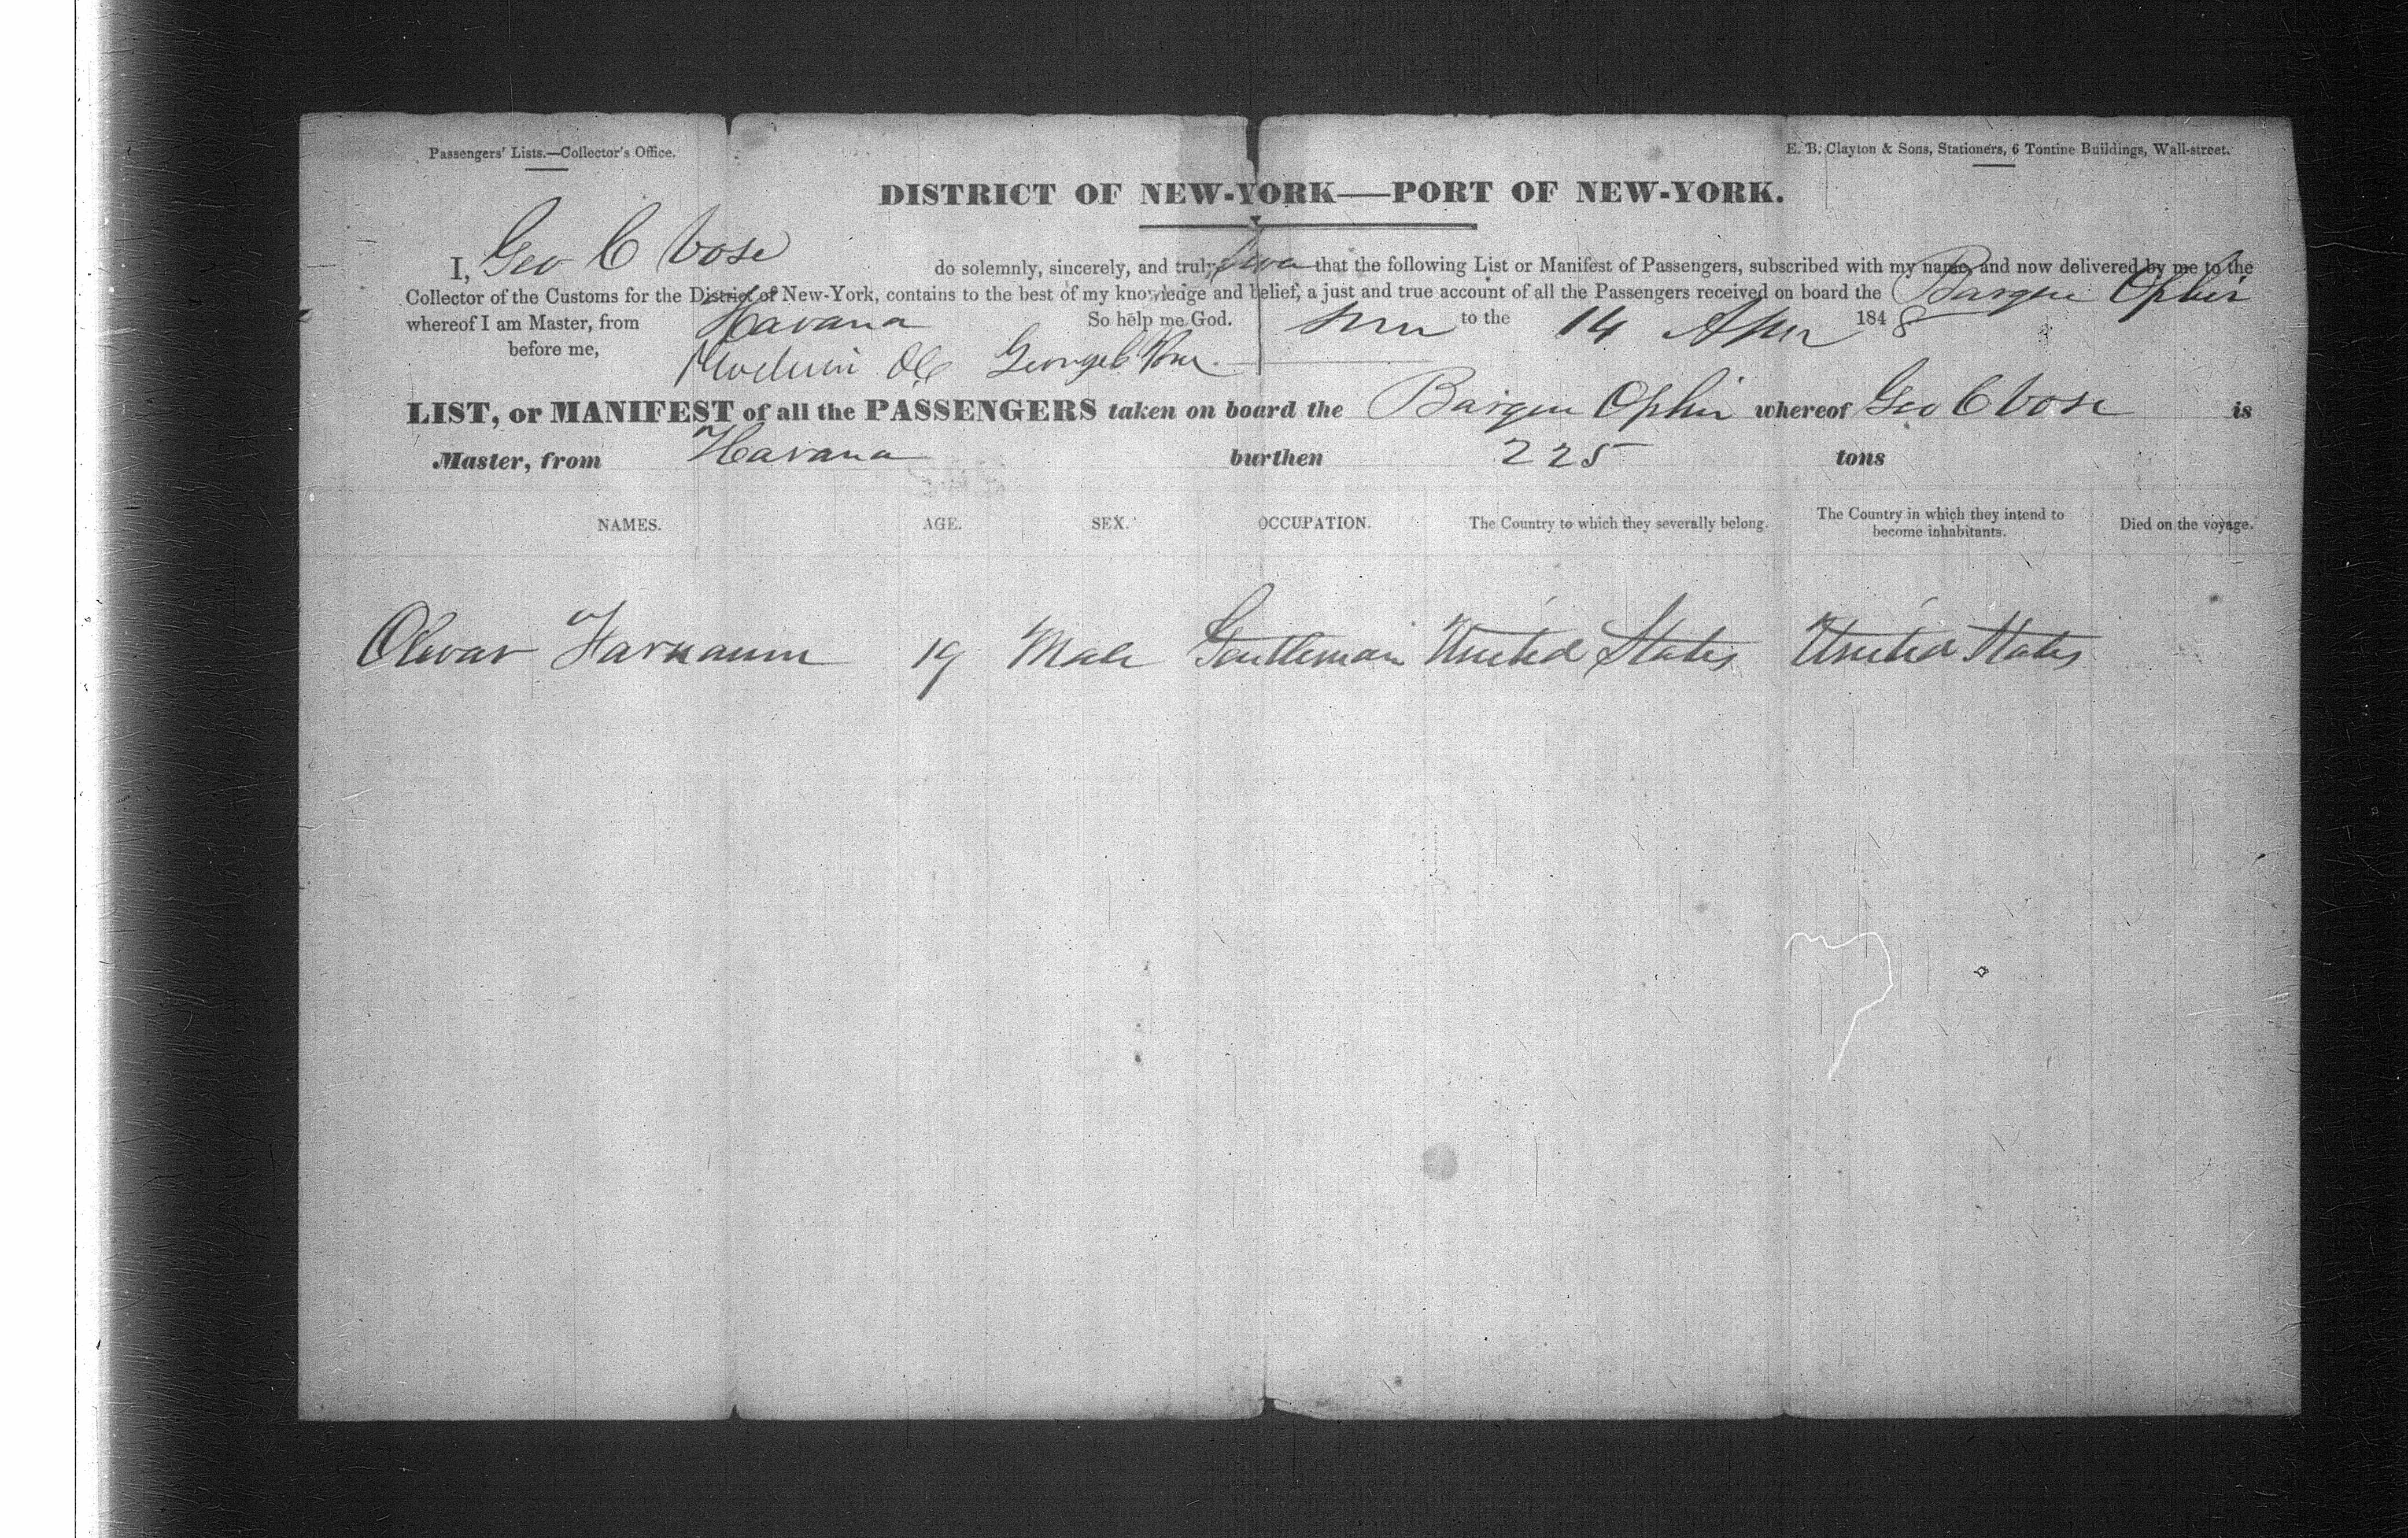 Passengers' Lists.—Collector's Office.
E. B. Clayton & Sons, Stationers, 6 Tontine Buildings, Wall-street.
DISTRICT OF NEW-YORK—PORT OF NEW-YORK.
I, Geo C Vose do solemnly, sincerely, and truly that the following List or Manifest of Passengers, subscribed with my name, and now delivered by me to the
Collector of the Customs for the District of New-York, contains to the best of my knowledge and belief, a just and true account of all the Passengers received on board the Barque Ophir
whereof I am Master, from Havana So help me God. to the 14 Apr 1848
before me, George C Vose
LIST, or MANIFEST of all the PASSENGERS taken on board the Barque Ophir whereof Geo C Vose is
Master, from Havana burthen 225 tons
NAMES. AGE. SEX. OCCUPATION. The Country to which they severally belong. The Country in which they intend to become inhabitants. Died on the voyage.
Farnaum 19 Male Gentleman United States United States